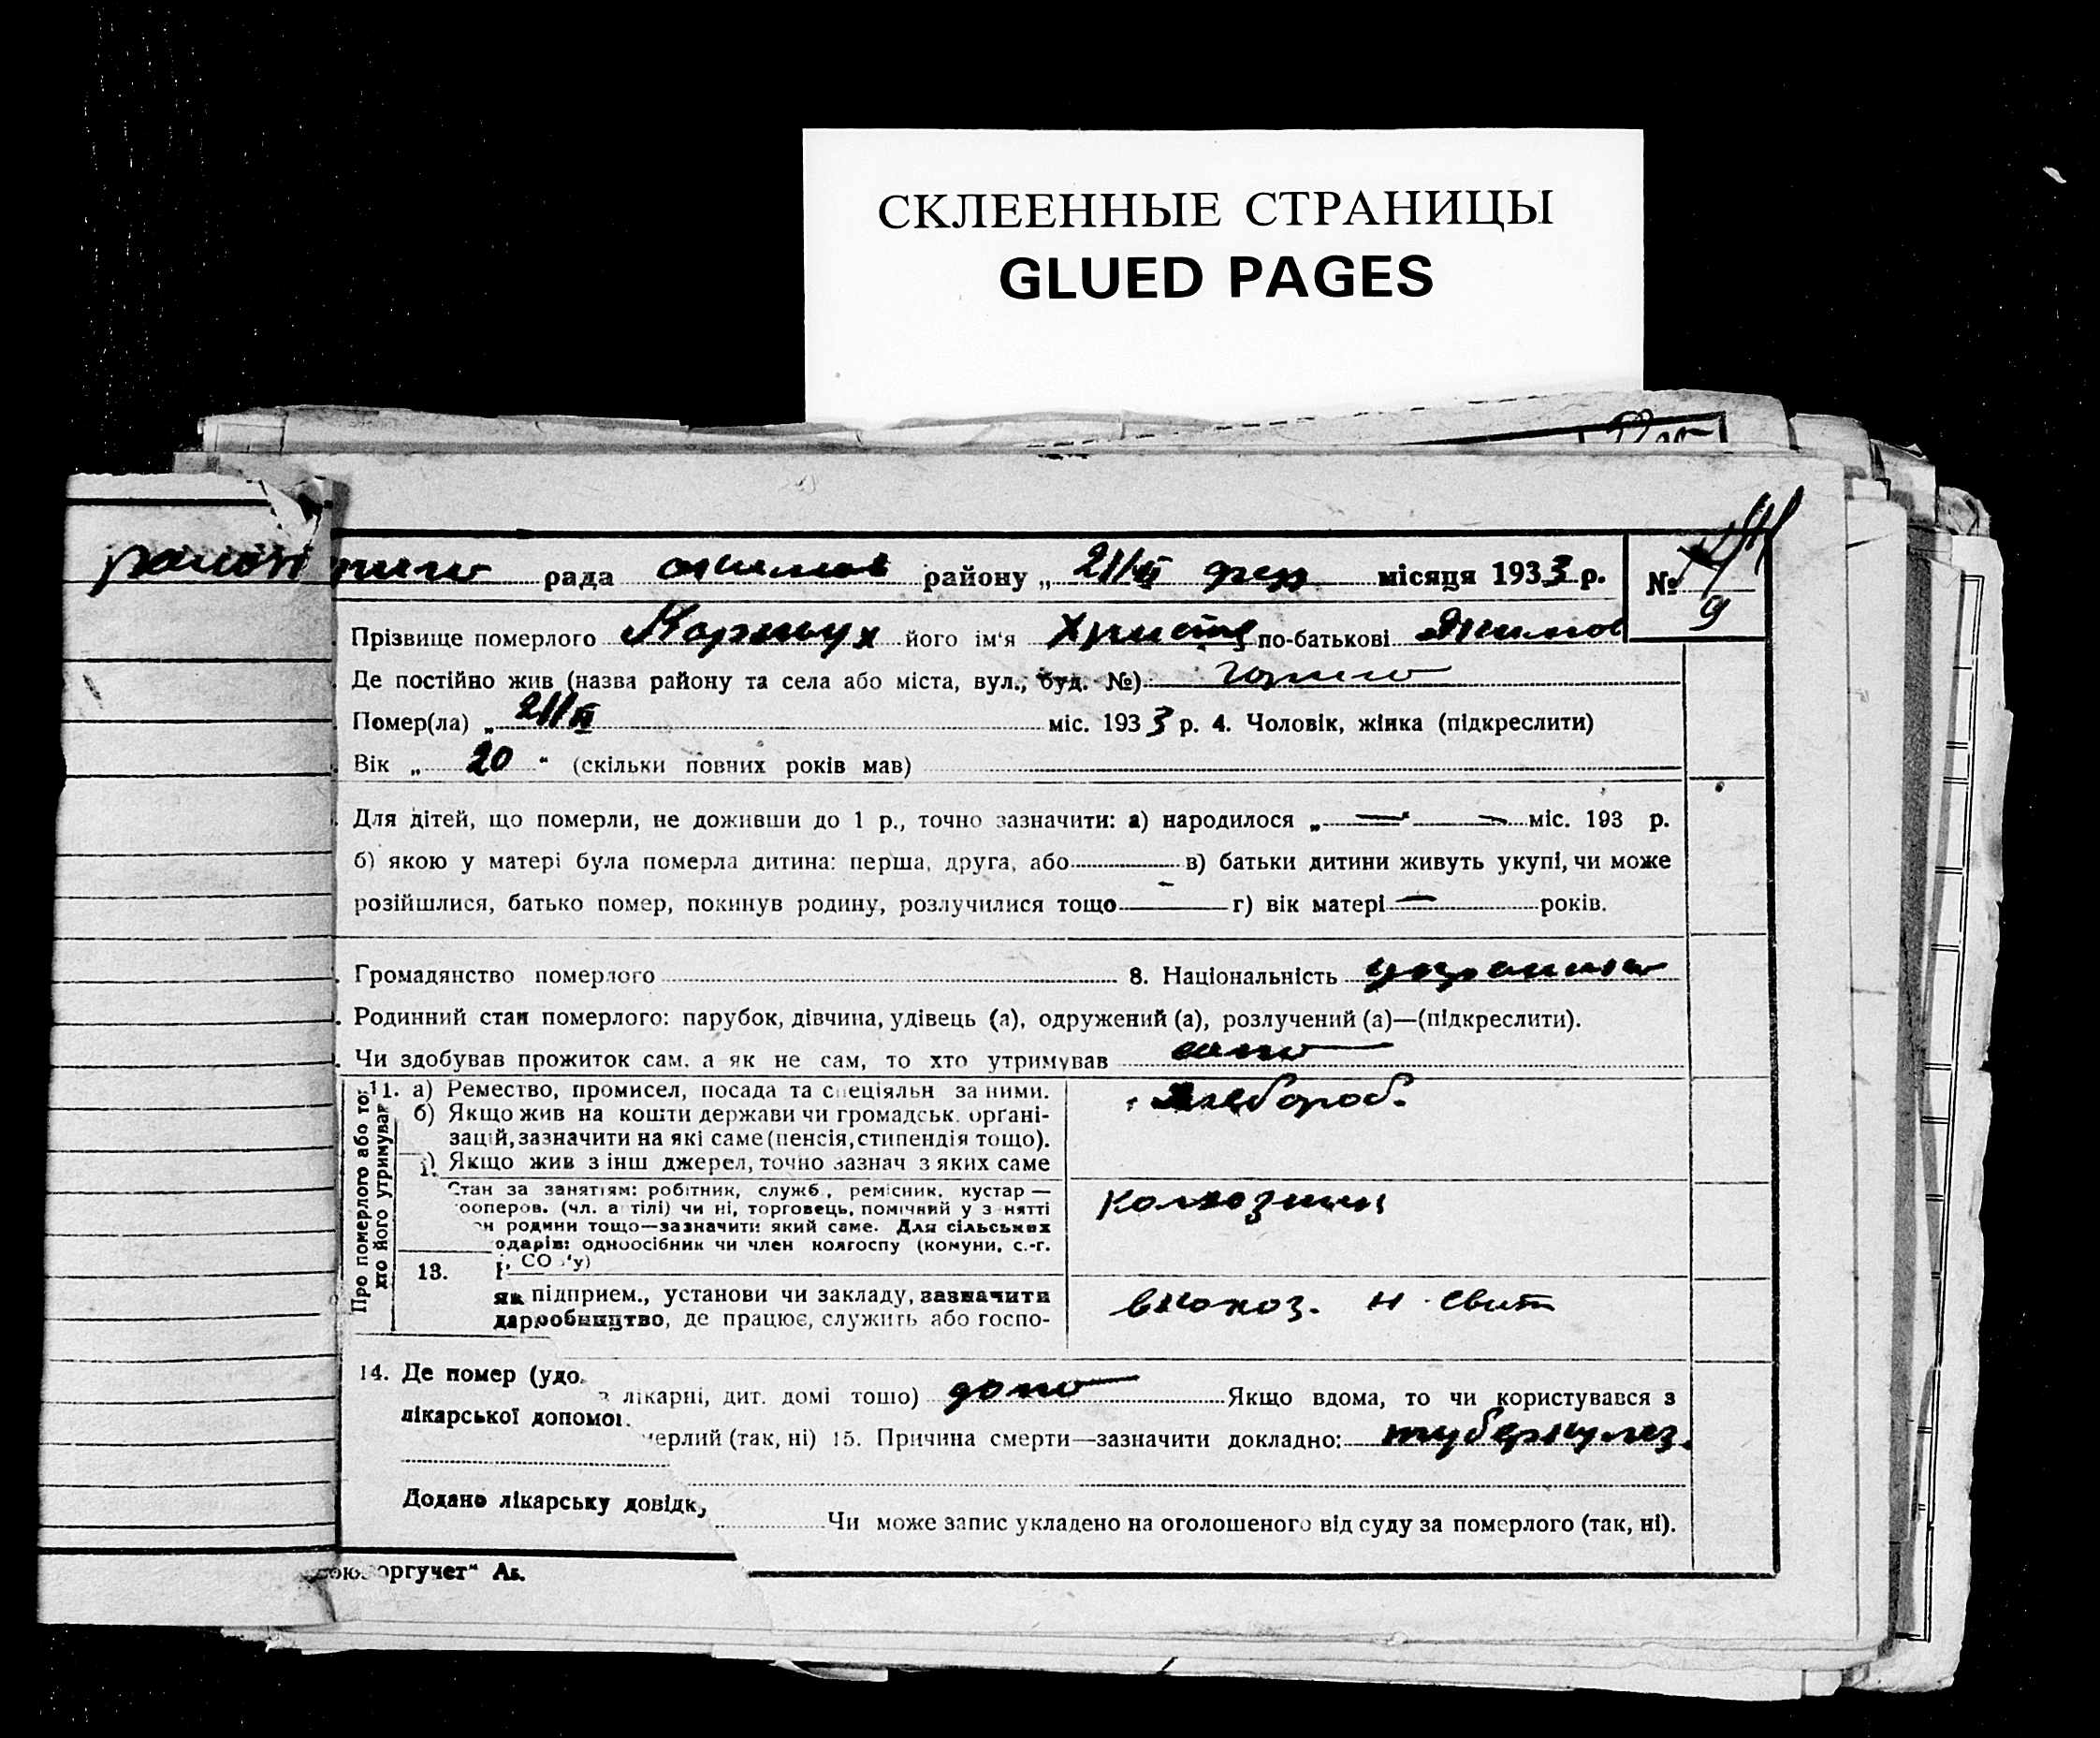 СКЛЕЕННЫЕ СТРАНИЦЫ
GLUED PAGES
рада района „ 21/II місяця 1933 р. № 9
Прізвище померлого його ім'я Христя по-батькові
Де постійно жив (назва району та села або міста, вул., буд. №)
Помер(ла) „ 21/II міс. 1933 р. 4. Чоловік, жінка (підкреслити)
Вік „ 20 “ (скільки повних років мав)
Для дітей, що померли, не доживши до 1 р., точно зазначити: а) народилося „ — “ — міс. 193 р.
б) якою у матері була померла дитина: перша, друга, або в) батьки дитини живуть укупі, чи може
розійшлися, батько помер, покинув родину, розлучилися тощо — г) вік матері — років.
Громадянство померлого 8. Національність
Родинний стан померлого: парубок, дівчина, удівець (а), одружений (а), розлучений (а)—(підкреслити).
Чи здобував прожиток сам, а як не сам, то хто утримував
Про померлого або то: хто його утримував
11. а) Ремество, промисел, посада та спеціяльн за ними. хлебороб.
б) Якщо жив на кошти держави чи громадськ. орґані-
зацій, зазначити на які саме (пенсія, стипендія тощо).
) Якщо жив з інш джерел, точно зазнач з яких саме
Стан за заняттям: робітник, служб., ремісник, кустар —
ооперов. (чл. артілі) чи ні, торговець, помічний у з нятті
н родини тощо—зазначити який саме. Для сільських
одарів: одноосібник чи член колгоспу (комуни, с.-г.
, СО 'у)
колхозник
13.
як підприєм., установи чи закладу, зазначити
дарробництво, де працює, служить або госпо-
14. Де помер (удо.
лікарні, дит. домі тощо) дома Якщо вдома, то чи користувався з
лікарської допомог.
мерлий (так, ні) 15. Причина смерти—зазначити докладно: туберкулез.
Додано лікарську довідк,
Чи може запис укладено на оголошеного від суду за померлого (так, ні).
оргучет“